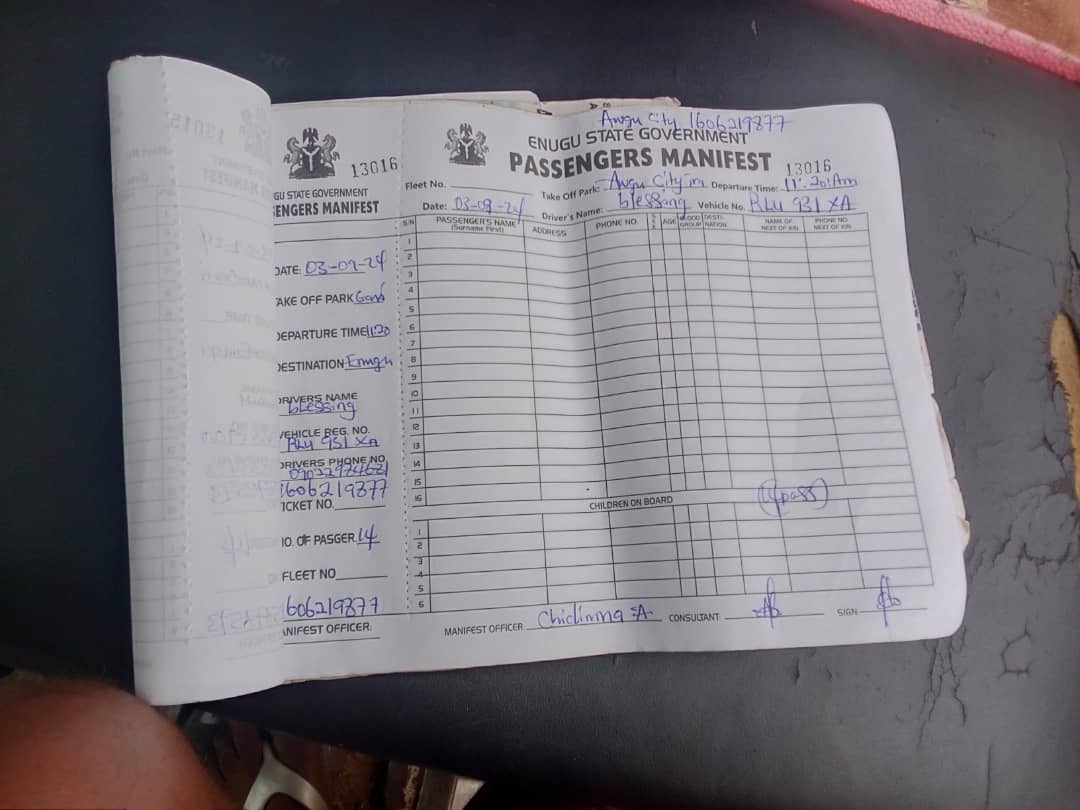 13016
GU STATE GOVERNMENT
ENGERS MANIFEST
DATE: 03-09-24
TAKE OFF PARK
DEPARTURE TIME 11:20
DESTINATION Enugu
DRIVERS NAME
blessing
VEHICLE REG. NO.
931 XA
DRIVERS PHONE NO
1606219877
TICKET NO.
NO. OF PASGER. 14
FLEET NO
1606219877
MANIFEST OFFICER:
Awgu City 1606219877
ENUGU STATE GOVERNMENT
PASSENGERS MANIFEST 13016
Fleet No. Take Off Park: Awgu City Departure Time: 11:20Am
Date: 03-09-24 Driver's Name: blessing Vehicle No. 931 XA
S/N PASSENGER'S NAME (Surname First) ADDRESS PHONE NO. SEX AGE BLOOD GROUP DESTI-NATION NAME OF NEXT OF KIN PHONE NO. NEXT OF KIN
1
2
3
4
5
6
7
8
9
10
11
12
13
14
15
16
CHILDREN ON BOARD
1
2
3
4
5
6
MANIFEST OFFICER Chidinma A CONSULTANT: SIGN